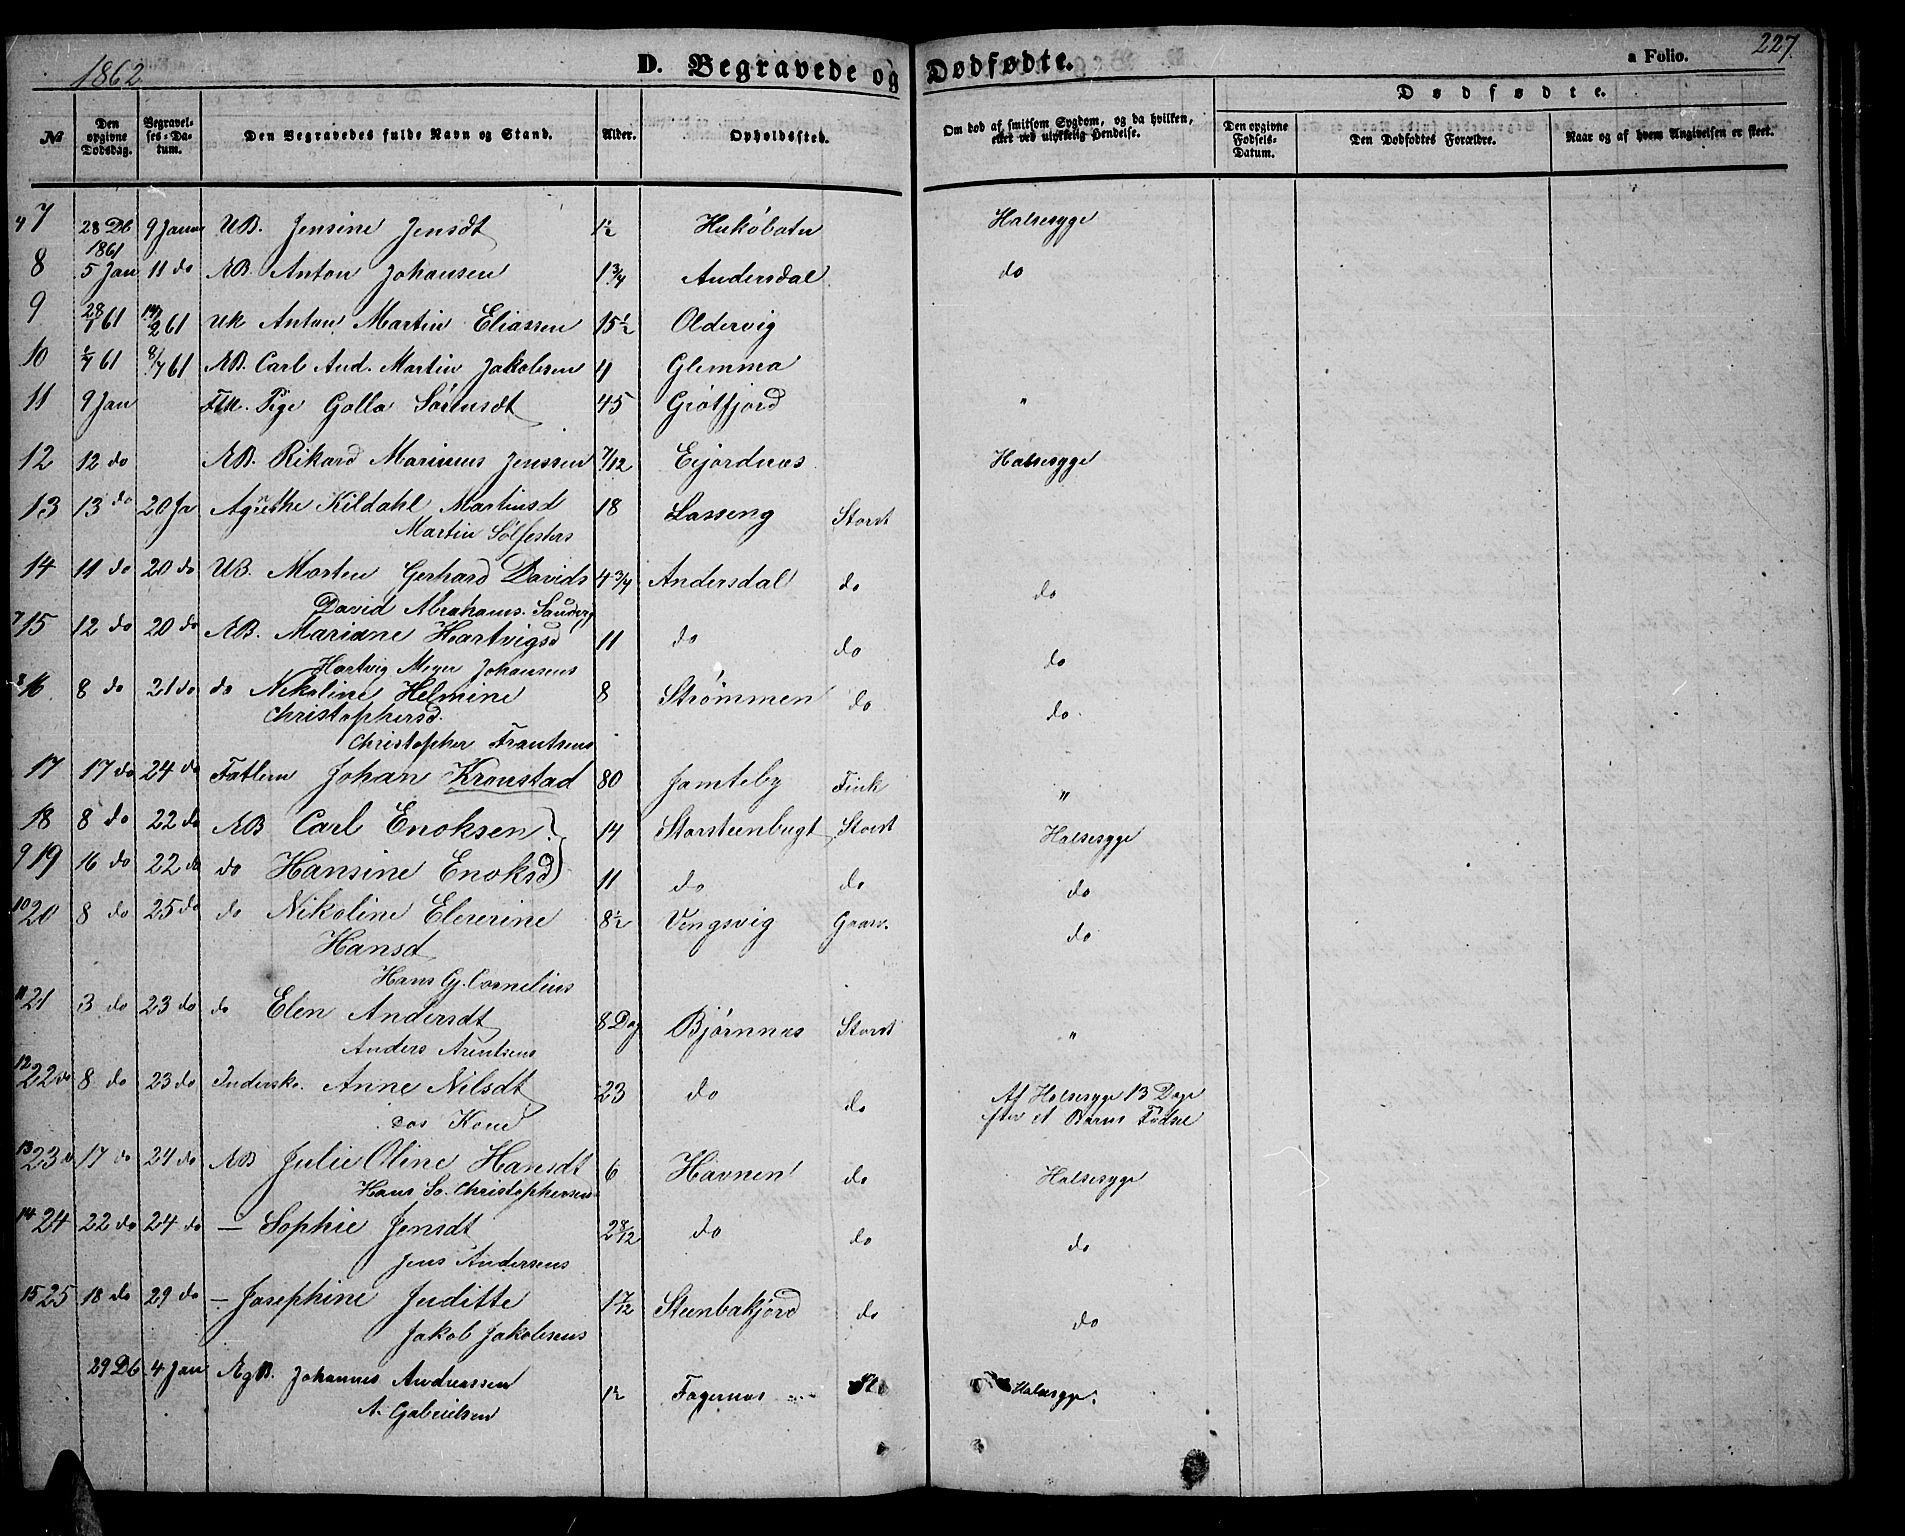 1862
D. Begravede og Dødfødte.
a Folio.
227
№
Den opgivne Dødsdag.
Begravelses-Datum.
Den Begravedes fulde Navn og Stand.
Alder.
Opholdssted.
Om død af smitsom Sygdom, og da hvilken, eller ved ulykkelig Hendelse.
Dødfødte.
Den opgivne Fødsels-Datum.
Den Dødfødtes Forældre.
Naar og af hvem Angivelsen er skeet.
7 28 Db 1861 9 Janu UB. Jensine Jensdt 1½ Halsesyge
8 5 Jan 11 do ÆB. Anton Johansen 1¾ Andersdal do
9 28/1 61 /2 61 UK Anton Martin Eliassen 15½ Oldervig
10 61 8/4 61 ÆB. Carl And. Martin Jakobsen 11 Glemma
11 9 Jan Pige Golla Sørensdt 45 Grøtfjord "
12 12 do ÆB. Rikard Marinus Jenssen 7/12 Eijordnæs Halsesyge
13 13 do 20 Ja Agethe Kildahl Martinsd 18 Lasseng Storst
Martin Sølfesters
14 11 do 20 do UB. Morten Gerhard Davids 4¾ Andersdal do do
David Abrahams. Sandberg
7 15 12 do 20 do ÆB. Mariane Hartvigsd 11 do do do
Hartvig Meyer Johansens
8 16 8 do 21 do do Nikoline Helmine 8 Strømmen do do
Christophersd.
Christopher Frantsens
17 17 do 24 do Fatlem Johan Kronstad 80 Jamteby Fink "
18 8 do 22 do ÆB Carl Enoksen 14 Storsteenbugt Storst Halsesyge
9 19 16 do 22 do do Hansine Enoksd 11 do do do
10 20 8 do 25 do do Nikoline Elererine 8½ Vengsvig Graav. do
Hansd
Hans Gj. Cornelius
11 21 3 do 23 do do Elen Andersdt 8 Dag Bjørnnes Storst "
Anders Arentsens
12 22 do 8 do 23 do Inderske. Anne Nilsdt 23 do do Af Halsesyge 13 Dage
efter et Barns Fødsel
Dos Kone
13 23 do 17 do 24 do ÆB Julie Oline Hansdt 6 Havnen do Halsesyge
Hans So. Christophersens
14 24 22 do 24 do — Sophie Jensdt 2 8/12 do do do
Jens Andersens
15 25 18 do 29 do — Josephine Juditte 1 7/12 Steenbakjord do do
Jakob Jakobsens
29 Db 4 Jan ÆgB. Johannes Andreassen 1½ Fagernæs Halsesyge.
A. Gabrielsen